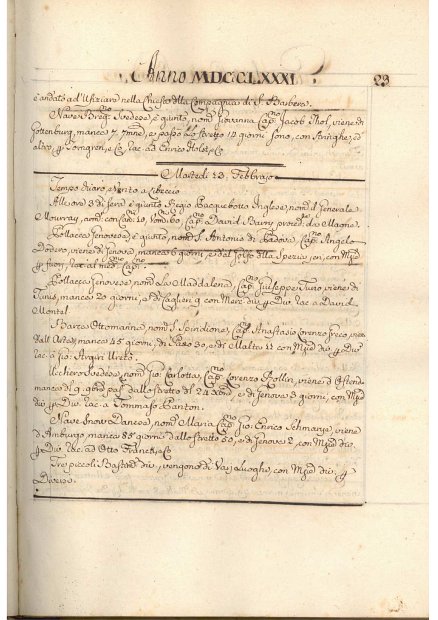 Anno MDCCLXXXI. 23
è andato ad Ufiziare nella Chiesa della Compagnia di S. Barbera.
Nave Svedese, è giunto, nom. Giovanna Cap.no Jacob Thol, viene di
Gottenburg, manca 7 7mne, e passò lo Stretto 14 giorni sono, con Aringhe, ed
altro, p Torngren, e C. rac. ad Enrico Holst, e C.
Martedì 13. Febbrajo
Tempo chiaro, e vento a Libeccio
Alle ore 3 di sera è giunto Regio Pacquebotto Inglese, nom. il Generale
Mourray, com. Cap.no David Bainy proced. da Maone.
Pollacca Genovese, è giunto, nom. S. Antonio di Padova, Cap.no Angelo
Dodero, viene di Genova, manca 6 giorni, e dal golfo della Spezia jeri, con Mzie
p fuori, rac. al med.mo Cap.no
Pollacca Genovese, nom. La Maddalena, Cap.no Giuseppe Turio, viene di
Tunis, manca 20 giorni, e di Caglieri 9 con Merc. div. p Div. rac. a David
Montel
Barca Ottomanna, nom. S. Spiridione, Cap.no Anastasio Lorenzo Greco, viene
dall' Arta, manca 45 giorni, di Passo 30, e di Malta 22 con Mzie div. p Div.
rac. a Gio. Argiri Ureto.
Svedese, nom. Gio. Carlotta, Cap.no Lorenzo Rollin, viene d'Ostenda
manca di 9. passò dallo Stretto del 24 Xbre, e di Genova 3 giorni, con Mzie
div. p Div. rac. a Tommaso Panton.
Nave Snow Danese, nom. Maria Cap.no Gio. Enrico Schmanja, viene
d'Amburgo manca 85 giorni dallo Stretto 50, e di Genova 2, con Mzie div.
p Div. rac. ad Otto Franck, e C.
Tre piccoli Bastim.ti div., vengono di Varj Luoghi, con Mzie div. p
Diversi.